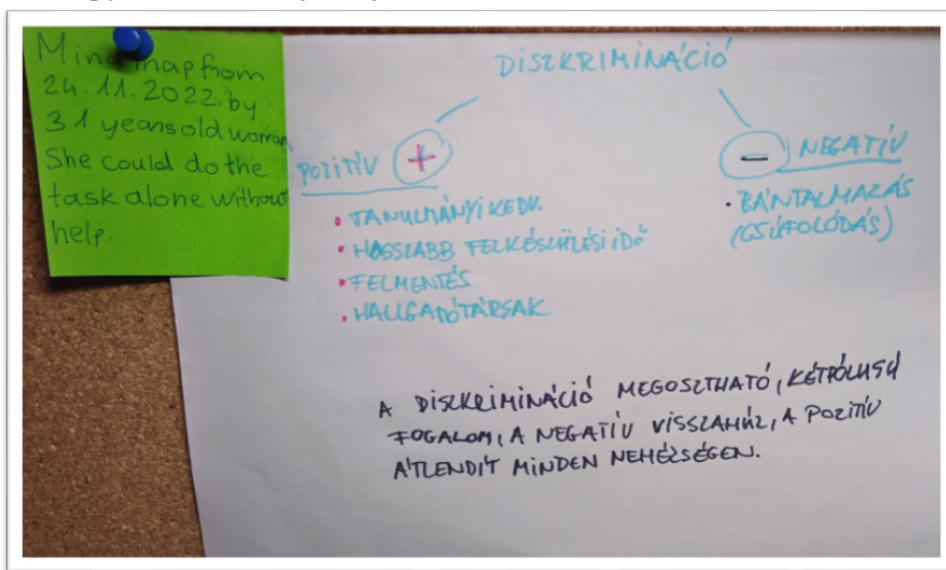 Mind map from
24. 11. 2022. by
31 years old woman.
She could do the
task alone without
help.
DISZKRIMINÁCIÓ
POZITÍV +
• TANULMÁNYI KEDV.
• HOSSZABB FELKÉSZÜLÉSI IDŐ
• FELMENTÉS
• HALLGATÓTÁRSAK
- NEGATÍV
• BÁNTALMAZÁS
(CSÚFOLÓDÁS)
A DISZKRIMINÁCIÓ MEGOSZTHATÓ, KÉTPÓLUSÚ
FOGALOM, A NEGATÍV VISSZAHÚZ, A POZITÍV
ÁTLENDÍT MINDEN NEHÉZSÉGEN.